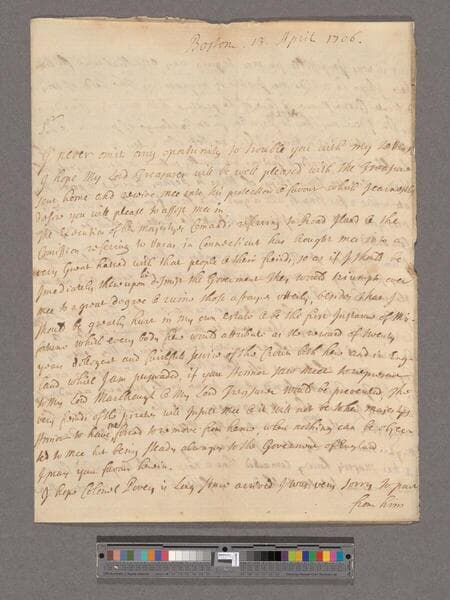 Boston. 13. April 1706.
Sr.
I never omit any oportunity to trouble you with my letters
I hope My Lord Treasurer will be well pleased with the Treasure
sent home and receive mee into his protection & favour which I earnestly
desire you will please to assist mee in
The Execution of her majestys Comands referring to Road Island & the
Comission referring to in Connecticut has brought mee into
very Great hatred with that people & their friends, so as if I should be
Imediately thereupon dismist the Goverment They would triumph over
mee to a great degree & ruine those affayres utterly, besides that
should be greatly hurt in my own estate & be the first Instance of Mis-
fortune which every body here would attribute as the reward of twenty
years diligent and faithfull service of the Crown both here and in Eng-
land, which I am perswaded if your Honour saw meet to represent
to My Lord Marlborough & My Lord Treasurer would be prevented The
very friends of the will pitty mee & it will not be to her majestys
Honour to have me forced to remove from home when nothing can be objec-
ted to mee but being steady always to the Goverment of England
I pray your favour herein.
I hope Colonel Povey is long since arrived I was very sorry to part
from him